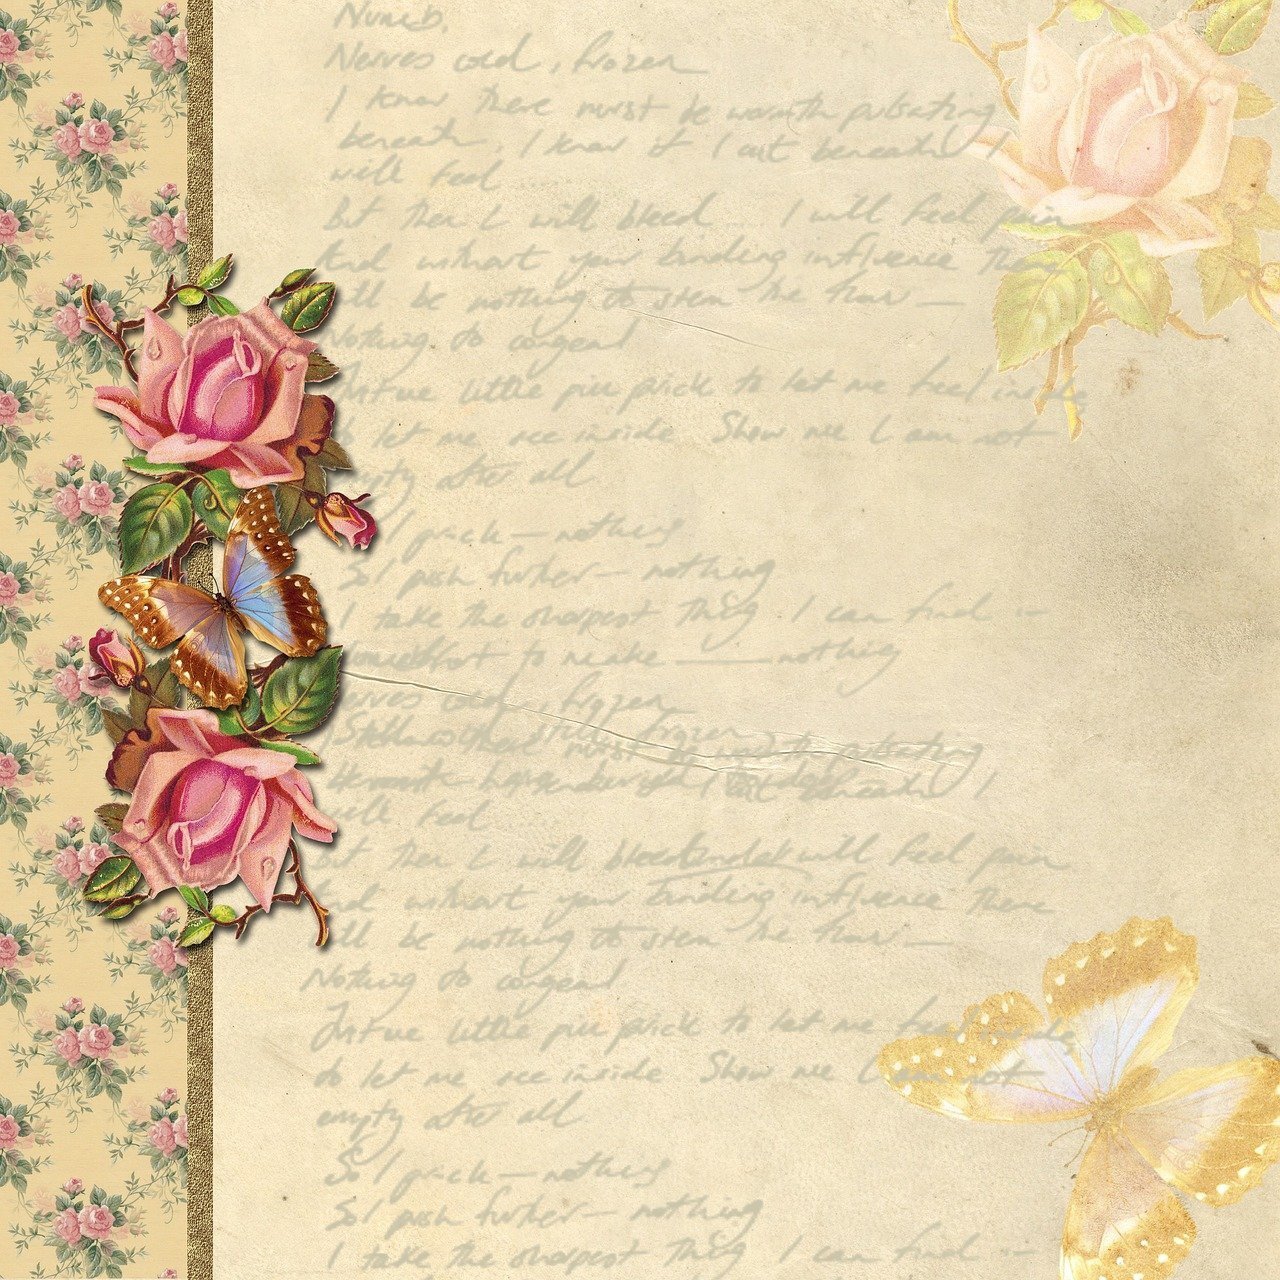 Numb.
Nerves cold, frozen
I know there must be warmth pulsating
beneath, I know if I cut beneath I
will feel
But then I will bleed I will feel pain
And without your binding influence there
ll be nothing to stem the flow —
Nothing to congeal
little pin prick to let me feel inside
to let me see inside Show me I am not
pty after all
I prick — nothing
So I push further — nothing
I take the sharpest thing I can find —
to make — nothing
erves cold, frozen
there must be pulsating
cut beneath I
will feel
But then I will will feel pain
And without your binding influence there
ll be nothing to stem the flow —
Nothing to congeal
little pin prick to let me feel
to let me see inside Show me I am not
empty after all
So I prick — nothing
So I push further — nothing
I take the sharpest thing I can find —